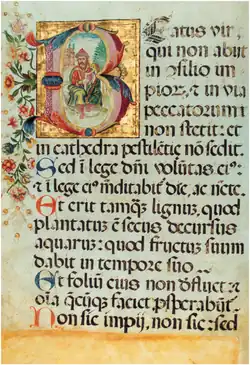 Beatus vir,
qui non abiit
in ↄsilio im
pioꝝ, et in via
peccatorum
non stetit: et
in cathedra pestilētię nō sedit.
Sed ī lege dn̄i volūtas eiꝰ:
et ī lege eiꝰ meditabit᷑ die, ac nᴏcte.
Et erit tamqus lignuꝫ, quod
plantatuꝫ ē secus decursus
aquarum: quod fructuꝫ suum
dabit in tempore suo.
Et foliū eius non dꝰfluet: et
oīa quęcūqꝫ faciet ꝓsperabūt᷑.
Non sic impij, non sic: sed